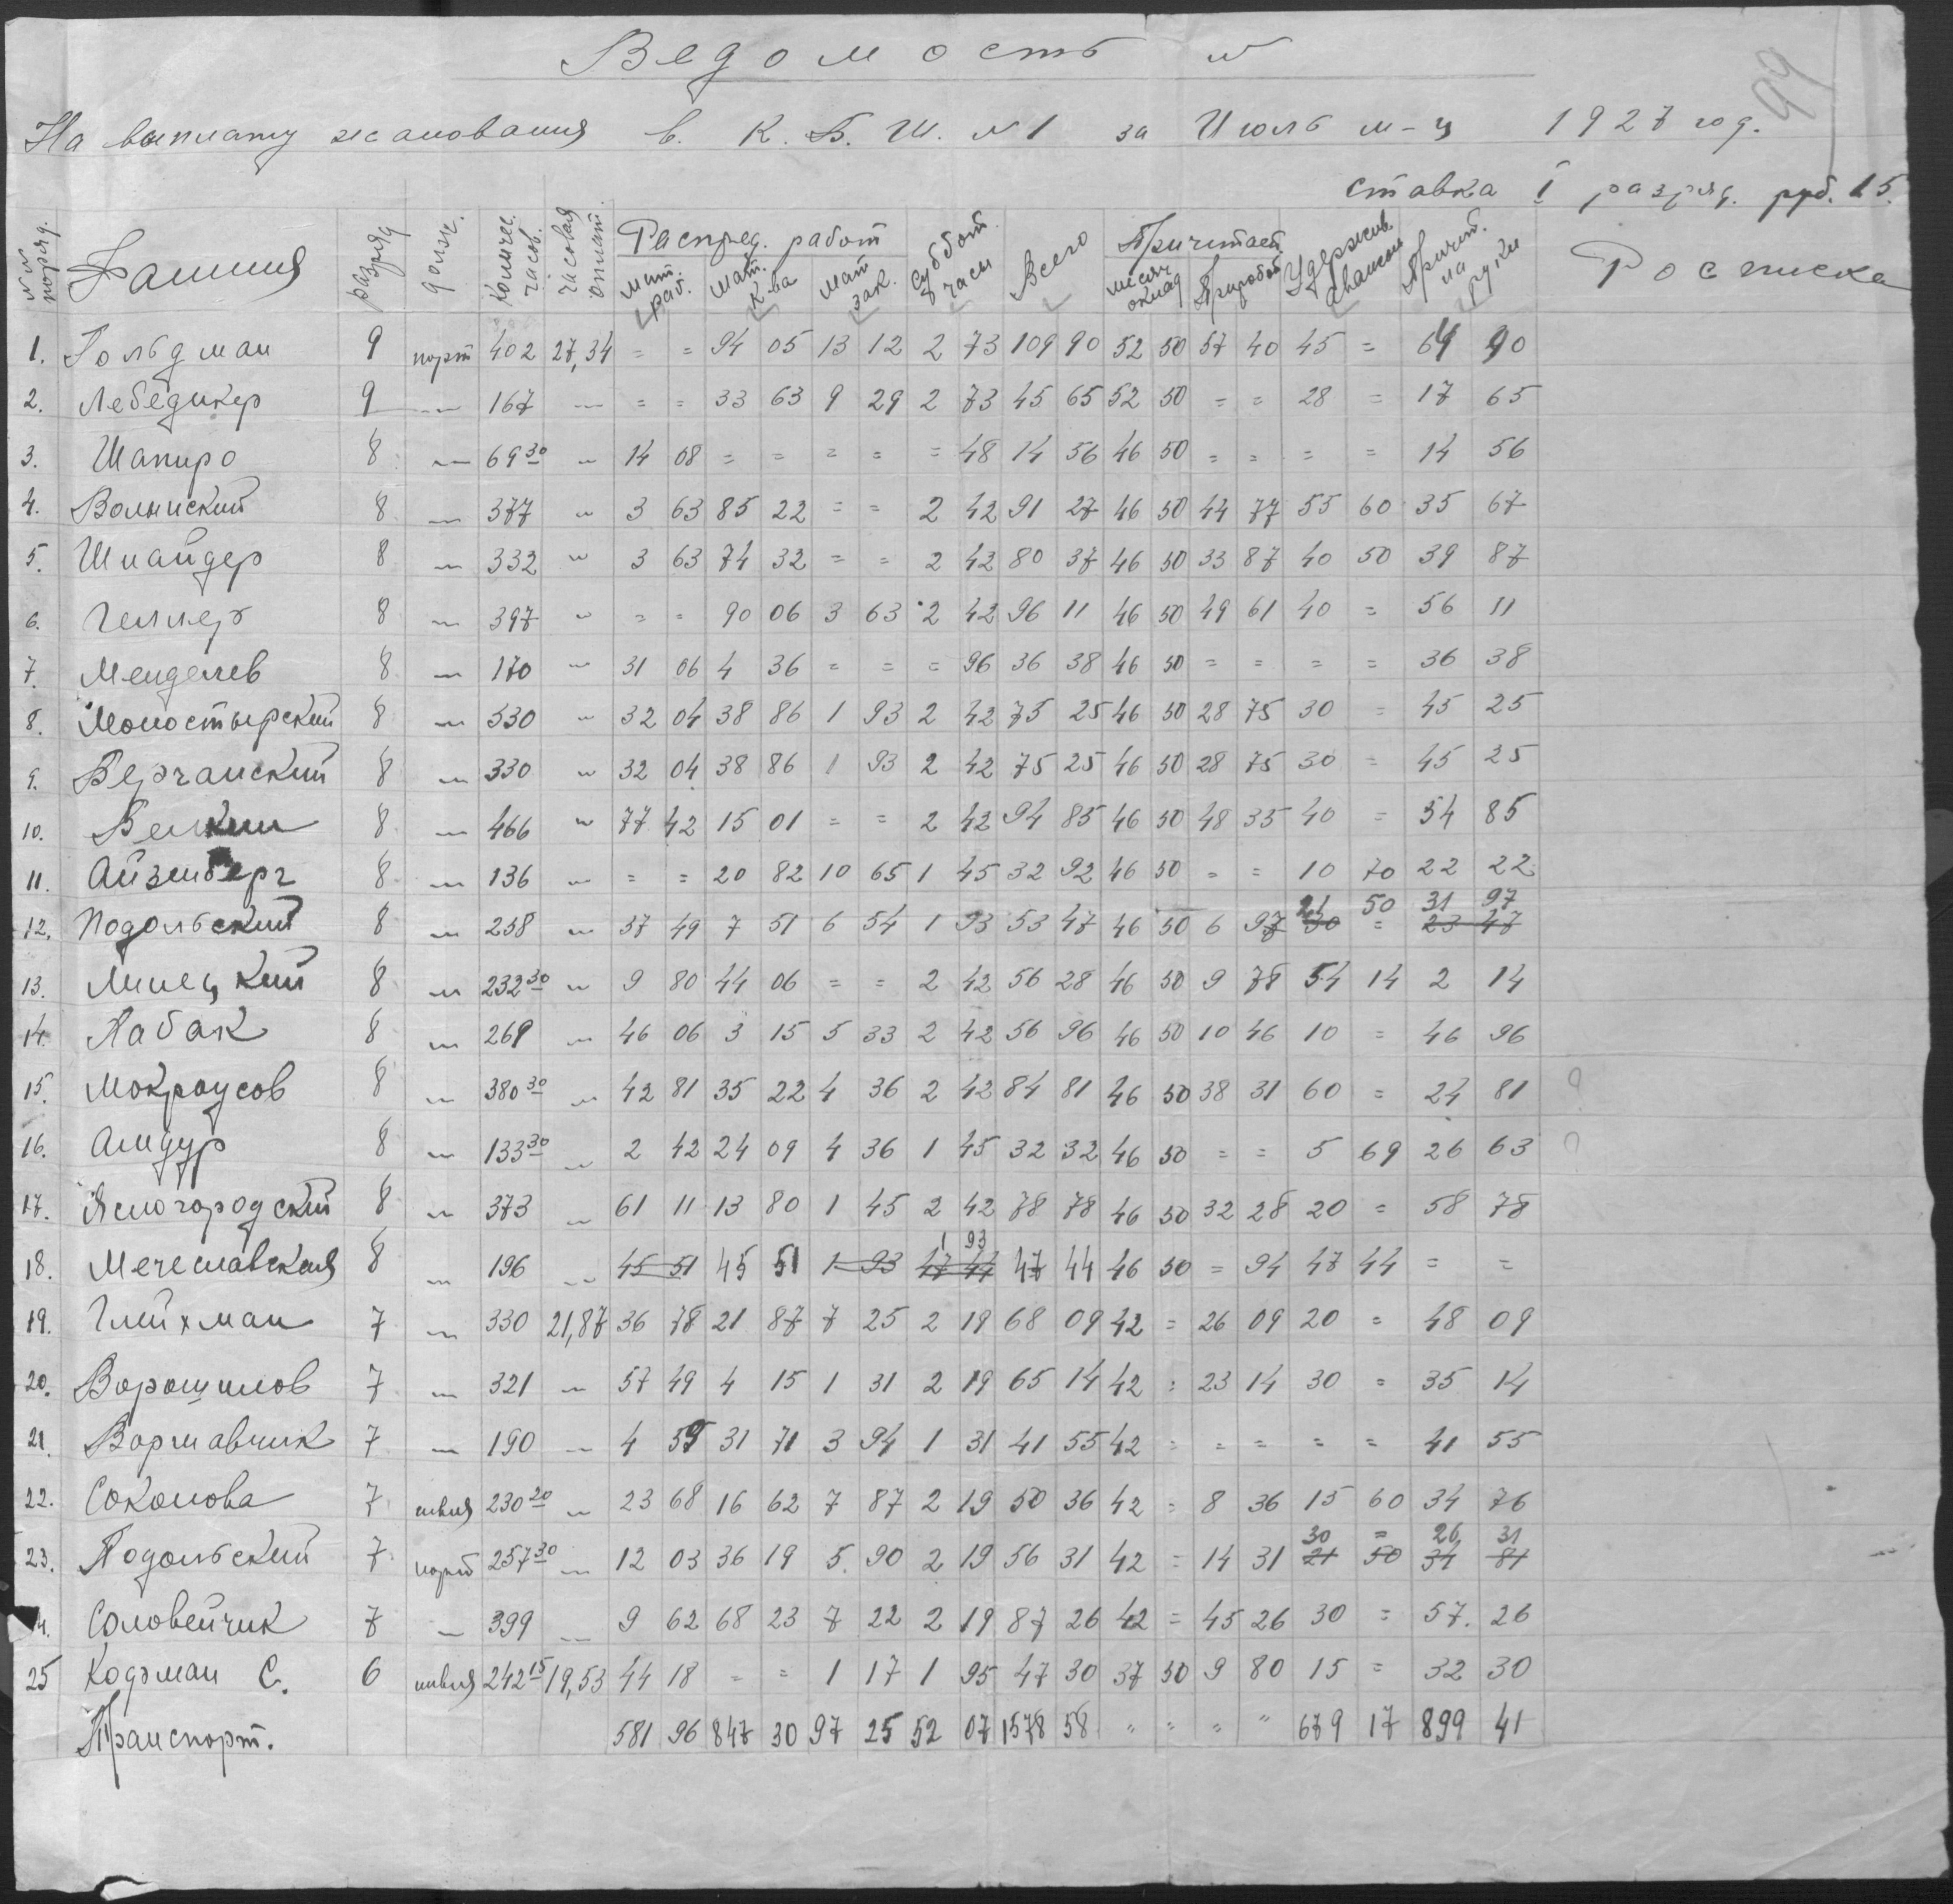 Ведомость №
99
На выплату жалования в. К. Б. Ш. №1 за Июль м-ц 1927 год.
ставка I разряд. руб. 15.
№№ поряд. Фамилия разряд должн. количес. часов. часовая оплат. Распред. работ мат. раб. мат. к-ва мат зак. суббот. часы Всего Причитает. месяч оклад Приработ Удержив. авансом Причит. на руки Росписка
1. Гольдман 9 порт 402 27,34 = = 94 05 13 12 2 73 109 90 52 50 57 40 45 = 64 90
2. Лебедикер 9 — 167 — = = 33 63 9 29 2 73 45 65 52 50 = = 28 = 17 65
3. Шапиро 8 — 69 30 " 14 08 = = = = = 48 14 56 46 50 = = = = 14 56
4. Волынский 8 — 377 " 3 63 85 22 = = 2 42 91 27 46 50 44 77 55 60 35 67
5. Шнайдер 8 — 332 " 3 63 74 32 = = 2 42 80 37 46 50 33 87 40 50 39 87
6. Геллер 8 — 397 " = = 90 06 3 63 2 42 96 11 46 50 49 61 40 = 56 11
7. Менделев 8 — 170 " 31 06 4 36 = = = 96 36 38 46 50 = = = = 36 38
8. Моностырский 8 — 330 " 32 04 38 86 1 93 2 42 75 25 46 50 28 75 30 = 45 25
9. Берчанский 8 — 330 " 32 04 38 86 1 93 2 42 75 25 46 50 28 75 30 = 45 25
10. Велкин 8 — 466 " 77 42 15 01 = = 2 42 94 85 46 50 48 35 40 = 54 85
11. Айзенберг 8 — 136 " = = 20 82 10 65 1 45 32 92 46 50 = = 10 70 22 22
21 50 31 97
12. Подольский 8 — 238 " 37 49 7 51 6 54 1 93 53 47 46 50 6 97 30 = 23 47
13. Линецкий 8 — 232 30 " 9 80 44 06 = = 2 42 56 28 46 50 9 78 54 14 2 14
14. Лабак 8 — 269 " 46 06 3 15 5 33 2 42 56 96 46 50 10 46 10 = 46 96
15. Мокроусов 8 — 380 30 " 42 81 35 22 4 36 2 42 84 81 46 50 38 31 60 = 24 81 ?
16. Амдур 8 — 133 30 " 2 42 24 09 4 36 1 45 32 32 46 50 = = 5 69 26 63 ?
17. Ясногородский 8 " 373 " 61 11 13 80 1 45 2 42 78 78 46 50 32 28 20 = 58 78
1 93
18. Мечеславская 8 — 196 " 45 51 45 51 1 93 47 44 47 44 46 50 = 94 47 44 = =
19. Глейхман 7 — 330 21,87 36 78 21 87 7 25 2 19 68 09 42 = 26 09 20 = 48 09
20. Ворошилов 7 — 321 " 57 49 4 15 1 31 2 19 65 14 42 = 23 14 30 = 35 14
21. Варшавчик 7 — 190 " 4 59 31 71 3 94 1 31 41 55 42 = = = = = 41 55
22. Соколова 7 швея 230 20 " 23 68 16 62 7 87 2 19 50 36 42 = 8 36 15 60 34 76
30 = 26 31
23. Подольский 7 порт 257 30 " 12 03 36 19 5. 90 2 19 56 31 42 = 14 31 21 50 34 81
4. Соловейчик 7 — 399 — 9 62 68 23 7 22 2 19 87 26 42 = 45 26 30 = 57. 26
25 Кодэман С. 6 швея 242 15 19,53 44 18 = = 1 17 1 95 47 30 37 50 9 80 15 = 32 30
Транспорт. 581 96 847 30 97 25 52 07 1578 58 " " " " 679 17 899 41